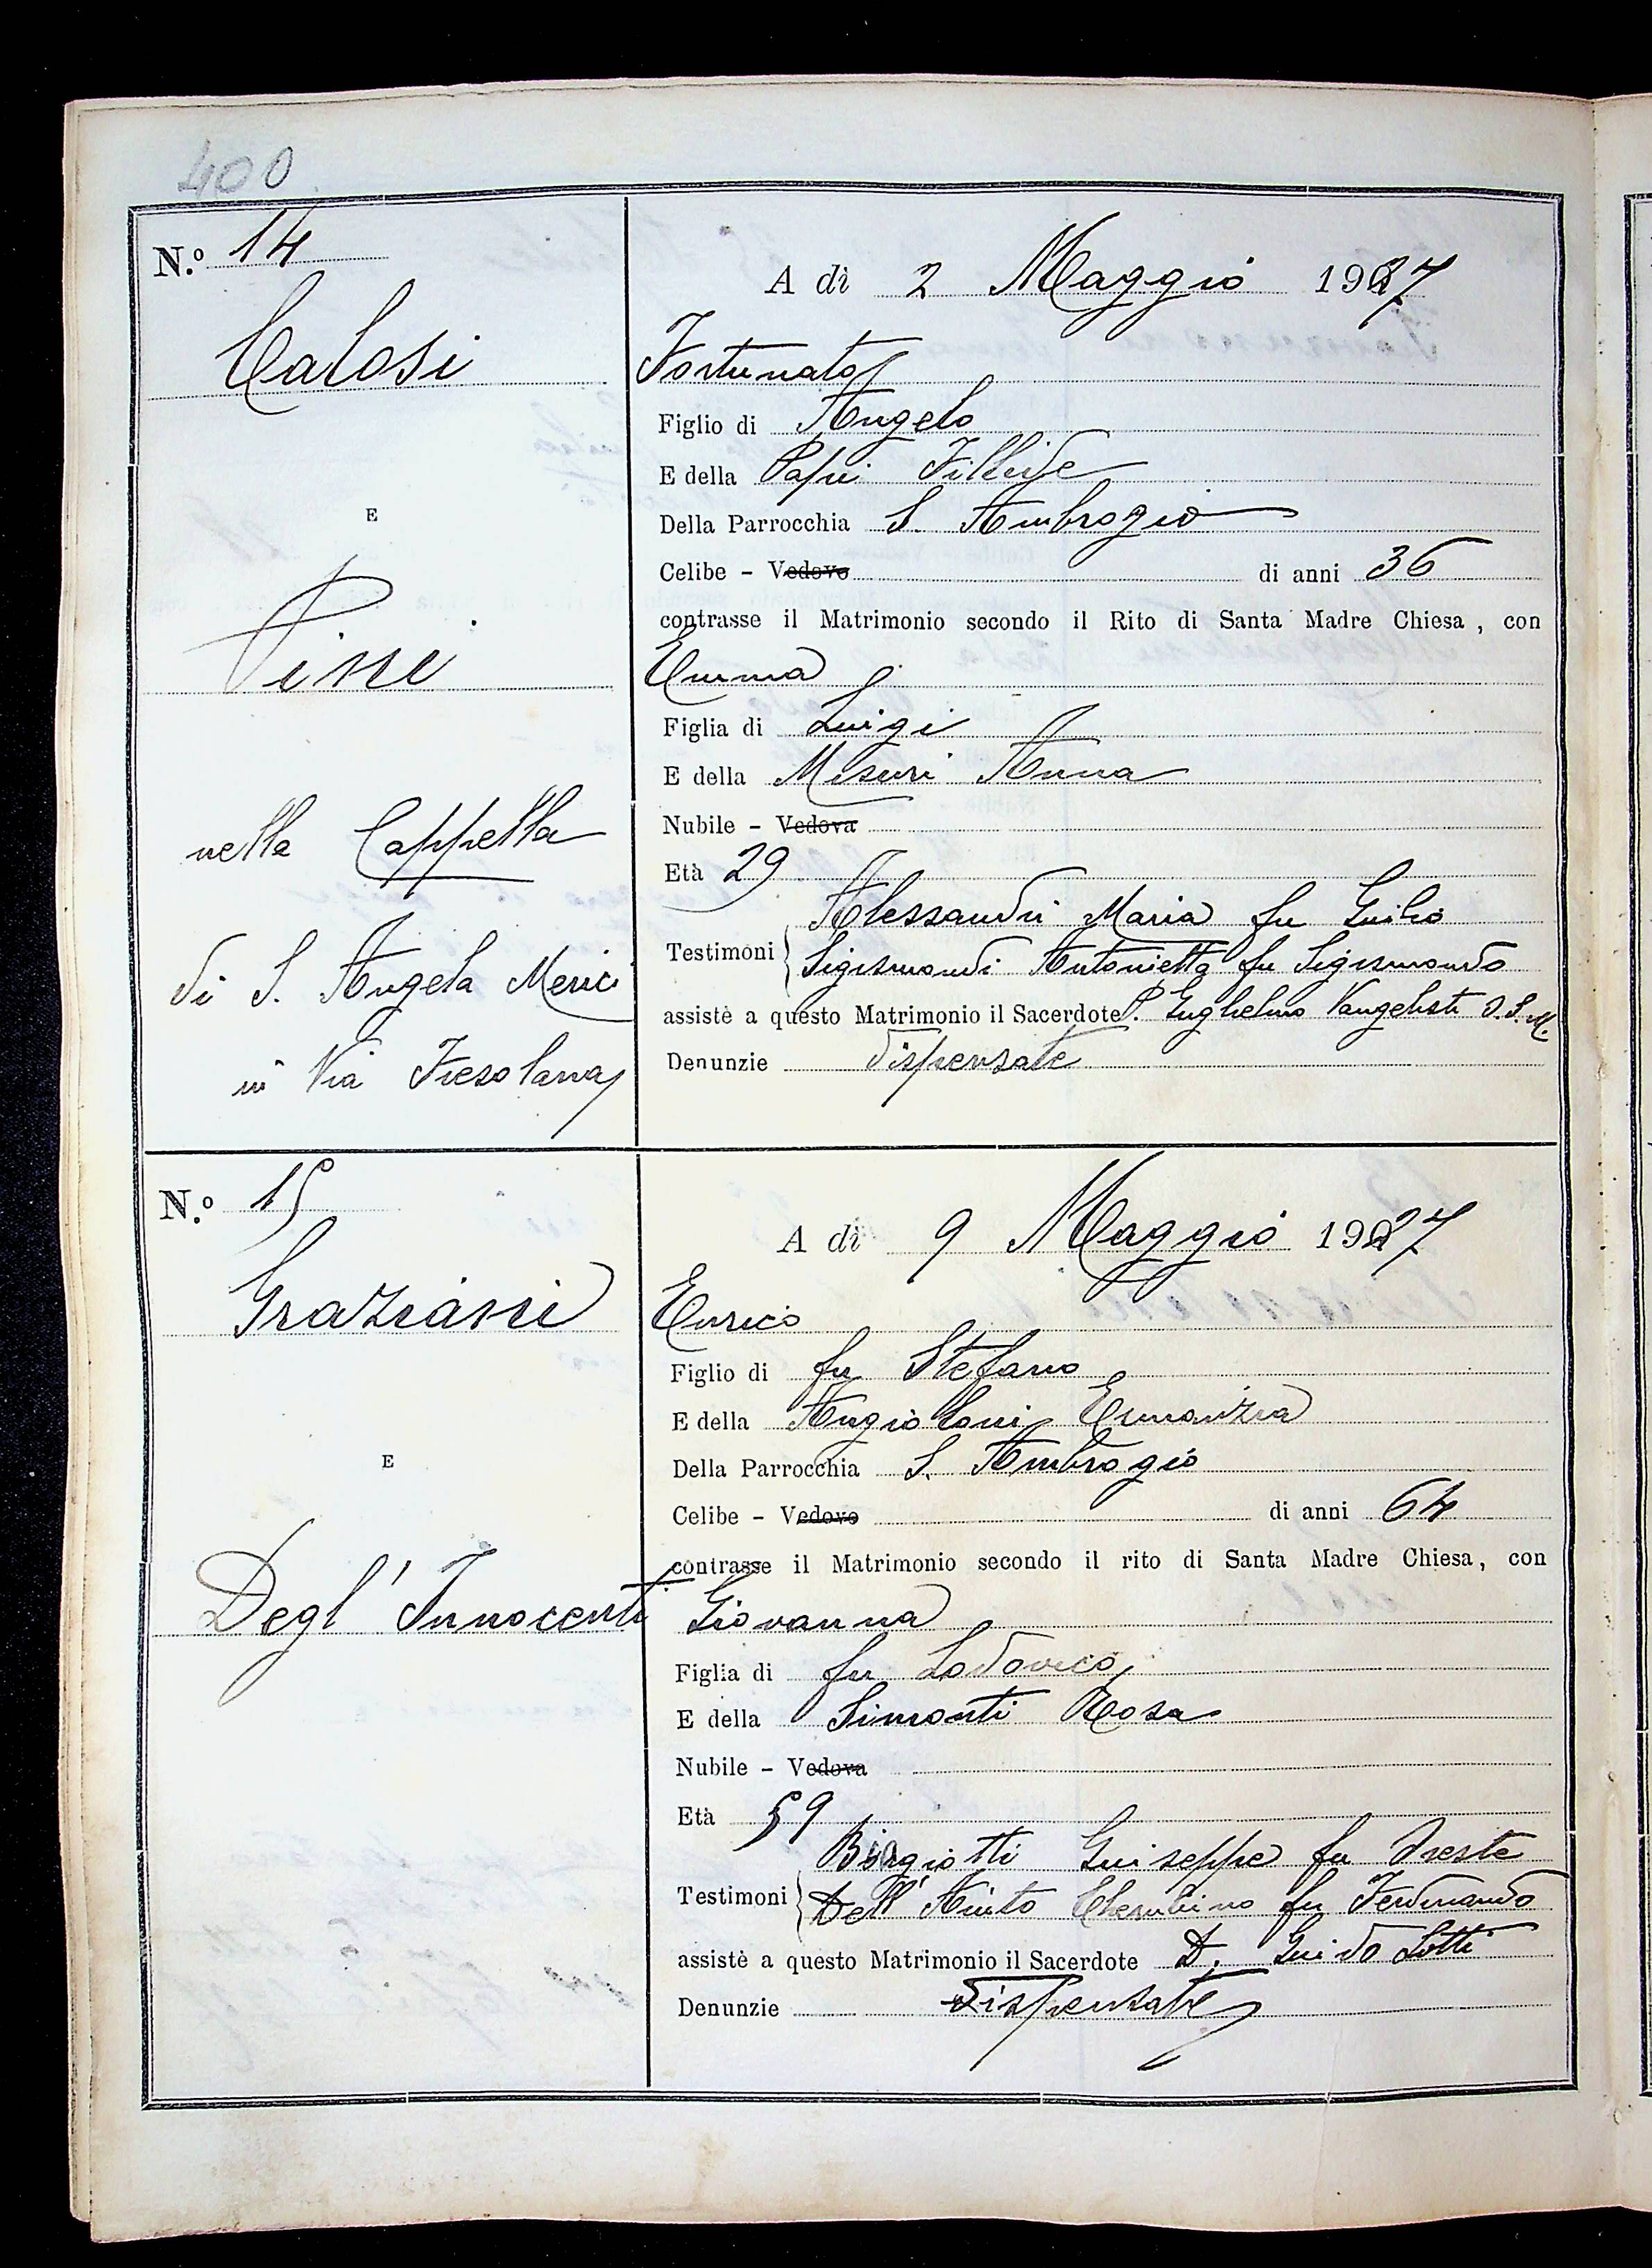 400
N.º 14
A dì 2 Maggio 1927
Calosi
Fortunato
Figlio di Angelo
E della Papi Fillide
E
Della Parrocchia S. Ambrogio
Celibe - Vedovo di anni 36
contrasse il Matrimonio secondo il Rito di Santa Madre Chiesa, con
Pini
Emma
Figlia di Luigi
E della Misuri Anna
nella Cappella
Nubile - Vedova
Età 29
di S. Angela Merici
in Via Fiesolana
Alessandri Maria fu Giulio
Testimoni
Sigismondi Antonietta fu Sigismondo
assistè a questo Matrimonio il Sacerdote P. Guglielmo Vangelisti O.S.M.
Denunzie dispensate
N.º 15
A dì 9 Maggio 1927
Graziani
Enrico
Figlio di fu Stefano
E della Angioloni
E
Della Parrocchia S. Ambrogio
Celibe - Vedovo di anni 64
contrasse il Matrimonio secondo il rito di Santa Madre Chiesa, con
Degl' Innocenti
Giovanna
Figlia di fu Lodovico
E della Simonti Rosa
Nubile - Vedova
Età 59
Biagiotti Giuseppe fu Oreste
Testimoni
Dell' Aiuto Cherubino fu Ferdinando
assistè a questo Matrimonio il Sacerdote D. Guido Lotti
Denunzie dispensate